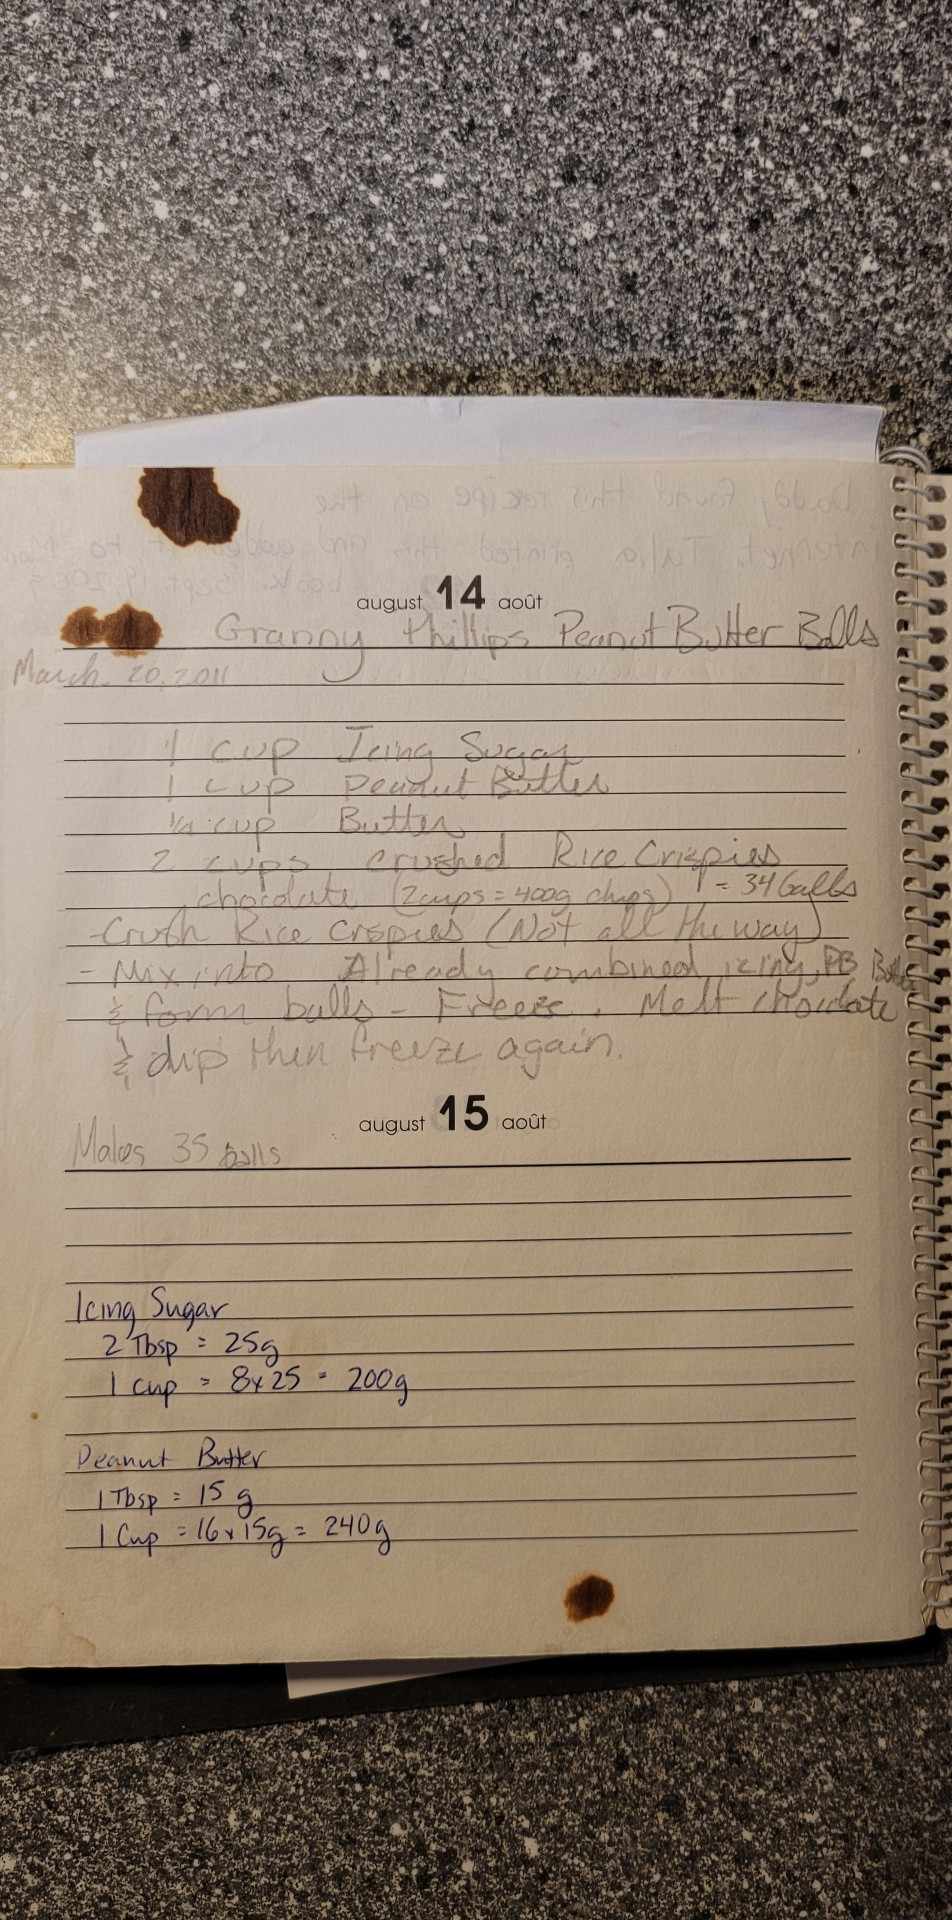 Daddy found this recipe on the
internet. Talia printed this and added it to
book. Sept. 19, 20
august 14 août
Granny Phillips Peanut Butter Balls
March. 20. 2011
1 cup Icing Sugar
1 cup Peanut Butter
1/4 cup Butter
2 cups crushed Rice Crispies
chocolate (2cups = 400g chips) = 34 balls
- Crush Rice Crispies (Not all the way)
- Mix into Already combined icing, PB Butter
& form balls - Freeze. Melt chocolate
& dip then freeze again.
august 15 août
Makes 35 balls
Icing Sugar
2 Tbsp = 25g
1 cup = 8x25 = 200g
Peanut Butter
1 Tbsp = 15 g
1 Cup = 16 x 15g = 240g